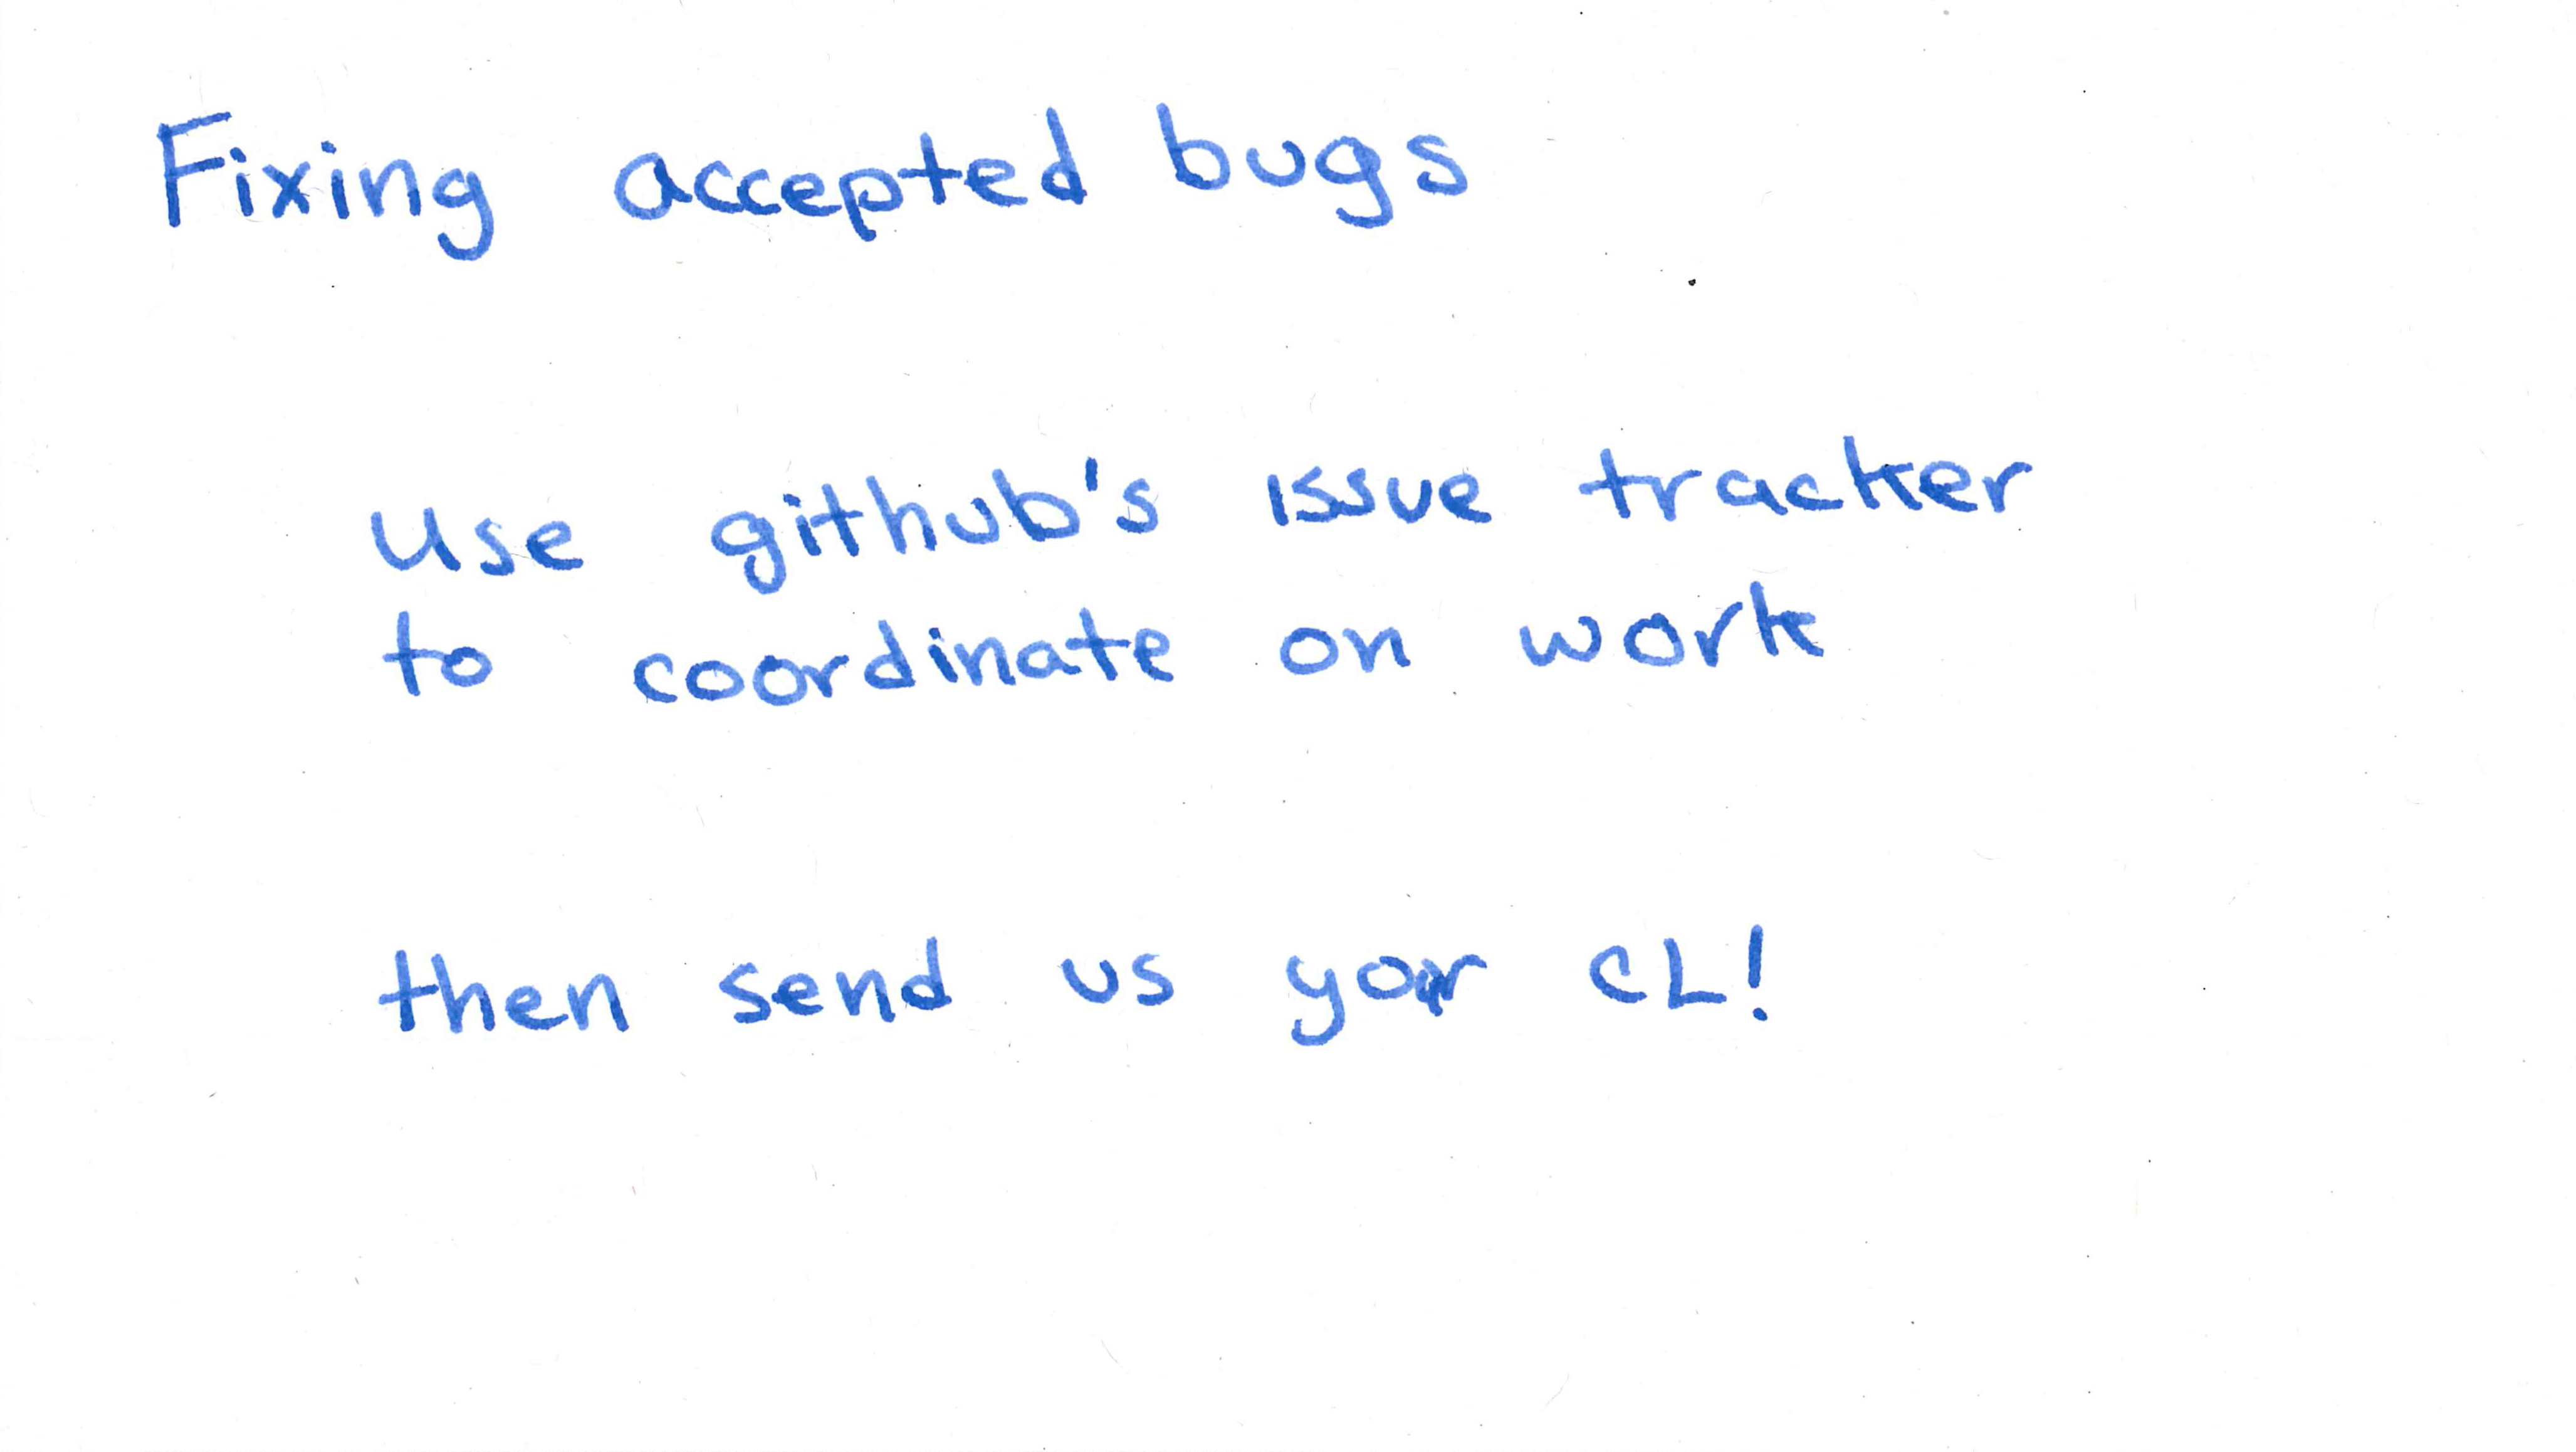 Fixing accepted bugs
Use github's issue tracker
to coordinate on work
then send us your CL!